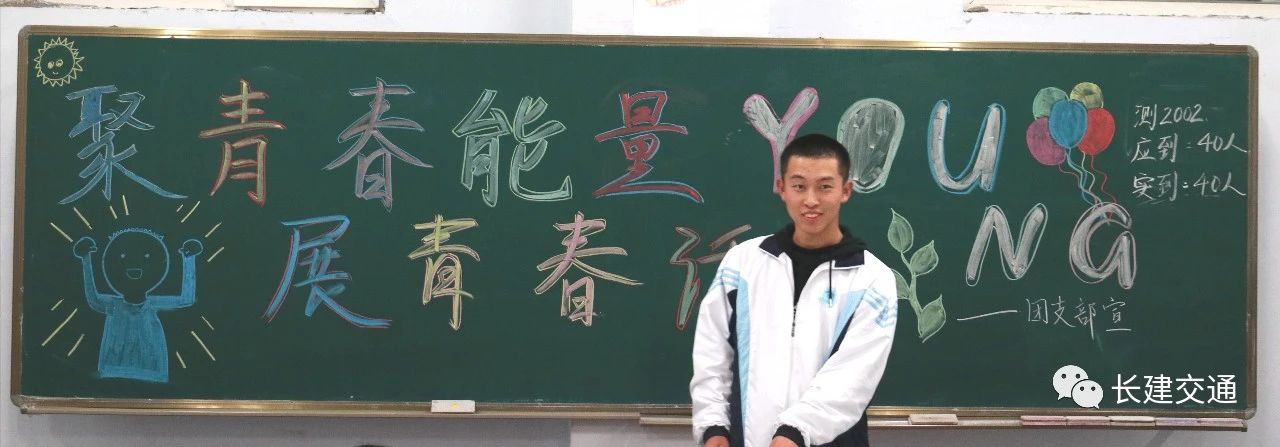 聚青春能量 YOU
展青春 NG
测2002.
应到:40人
实到:40人
——团支部宣
长建交通